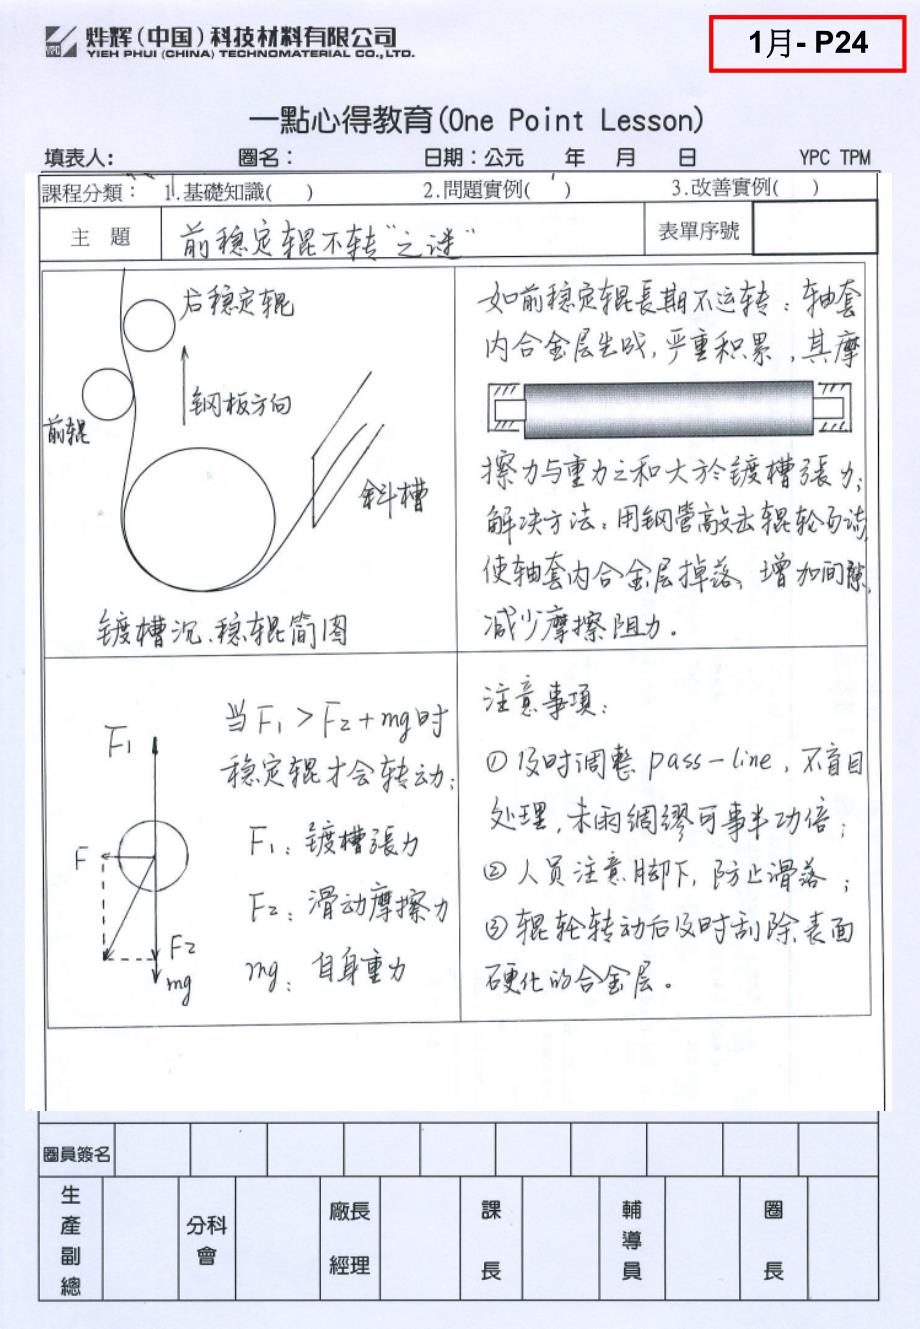 烨辉(中国)科技材料有限公司
YIEH PHUI (CHINA) TECHNOMATERIAL CO.,LTD.
YPC
1月- P24
一點心得教育(One Point Lesson)
填表人: 圈名: 日期:公元 年 月 日 YPC TPM
課程分類: 1.基礎知識( ) 2.問題實例( ) 3.改善實例( )
主 題 前稳定辊不转“之谜” 表單序號
后稳定辊
前辊
钢板方向
斜槽
镀槽沉、稳辊简图
如前稳定辊長期不运转:轴套
内合金层生成,严重积累,其摩
擦力与重力之和大於镀槽張力;
解决方法:用钢管敲击辊轮两端,
使轴套内合金层掉落、增加间隙,
减少摩擦阻力。
F1
F
F2
mg
当F1>F2+mg时
稳定辊才会转动;
F1:镀槽張力
F2:滑动摩擦力
mg:自身重力
注意事項:
①及时调整pass-line,不盲目
处理,未雨綢繆可事半功倍;
②人员注意脚下,防止滑落;
③辊轮转动后及时刮除表面
硬化的合金层。
圈員簽名
生產副總 分科會 廠長 經理 課長 輔導員 圈長